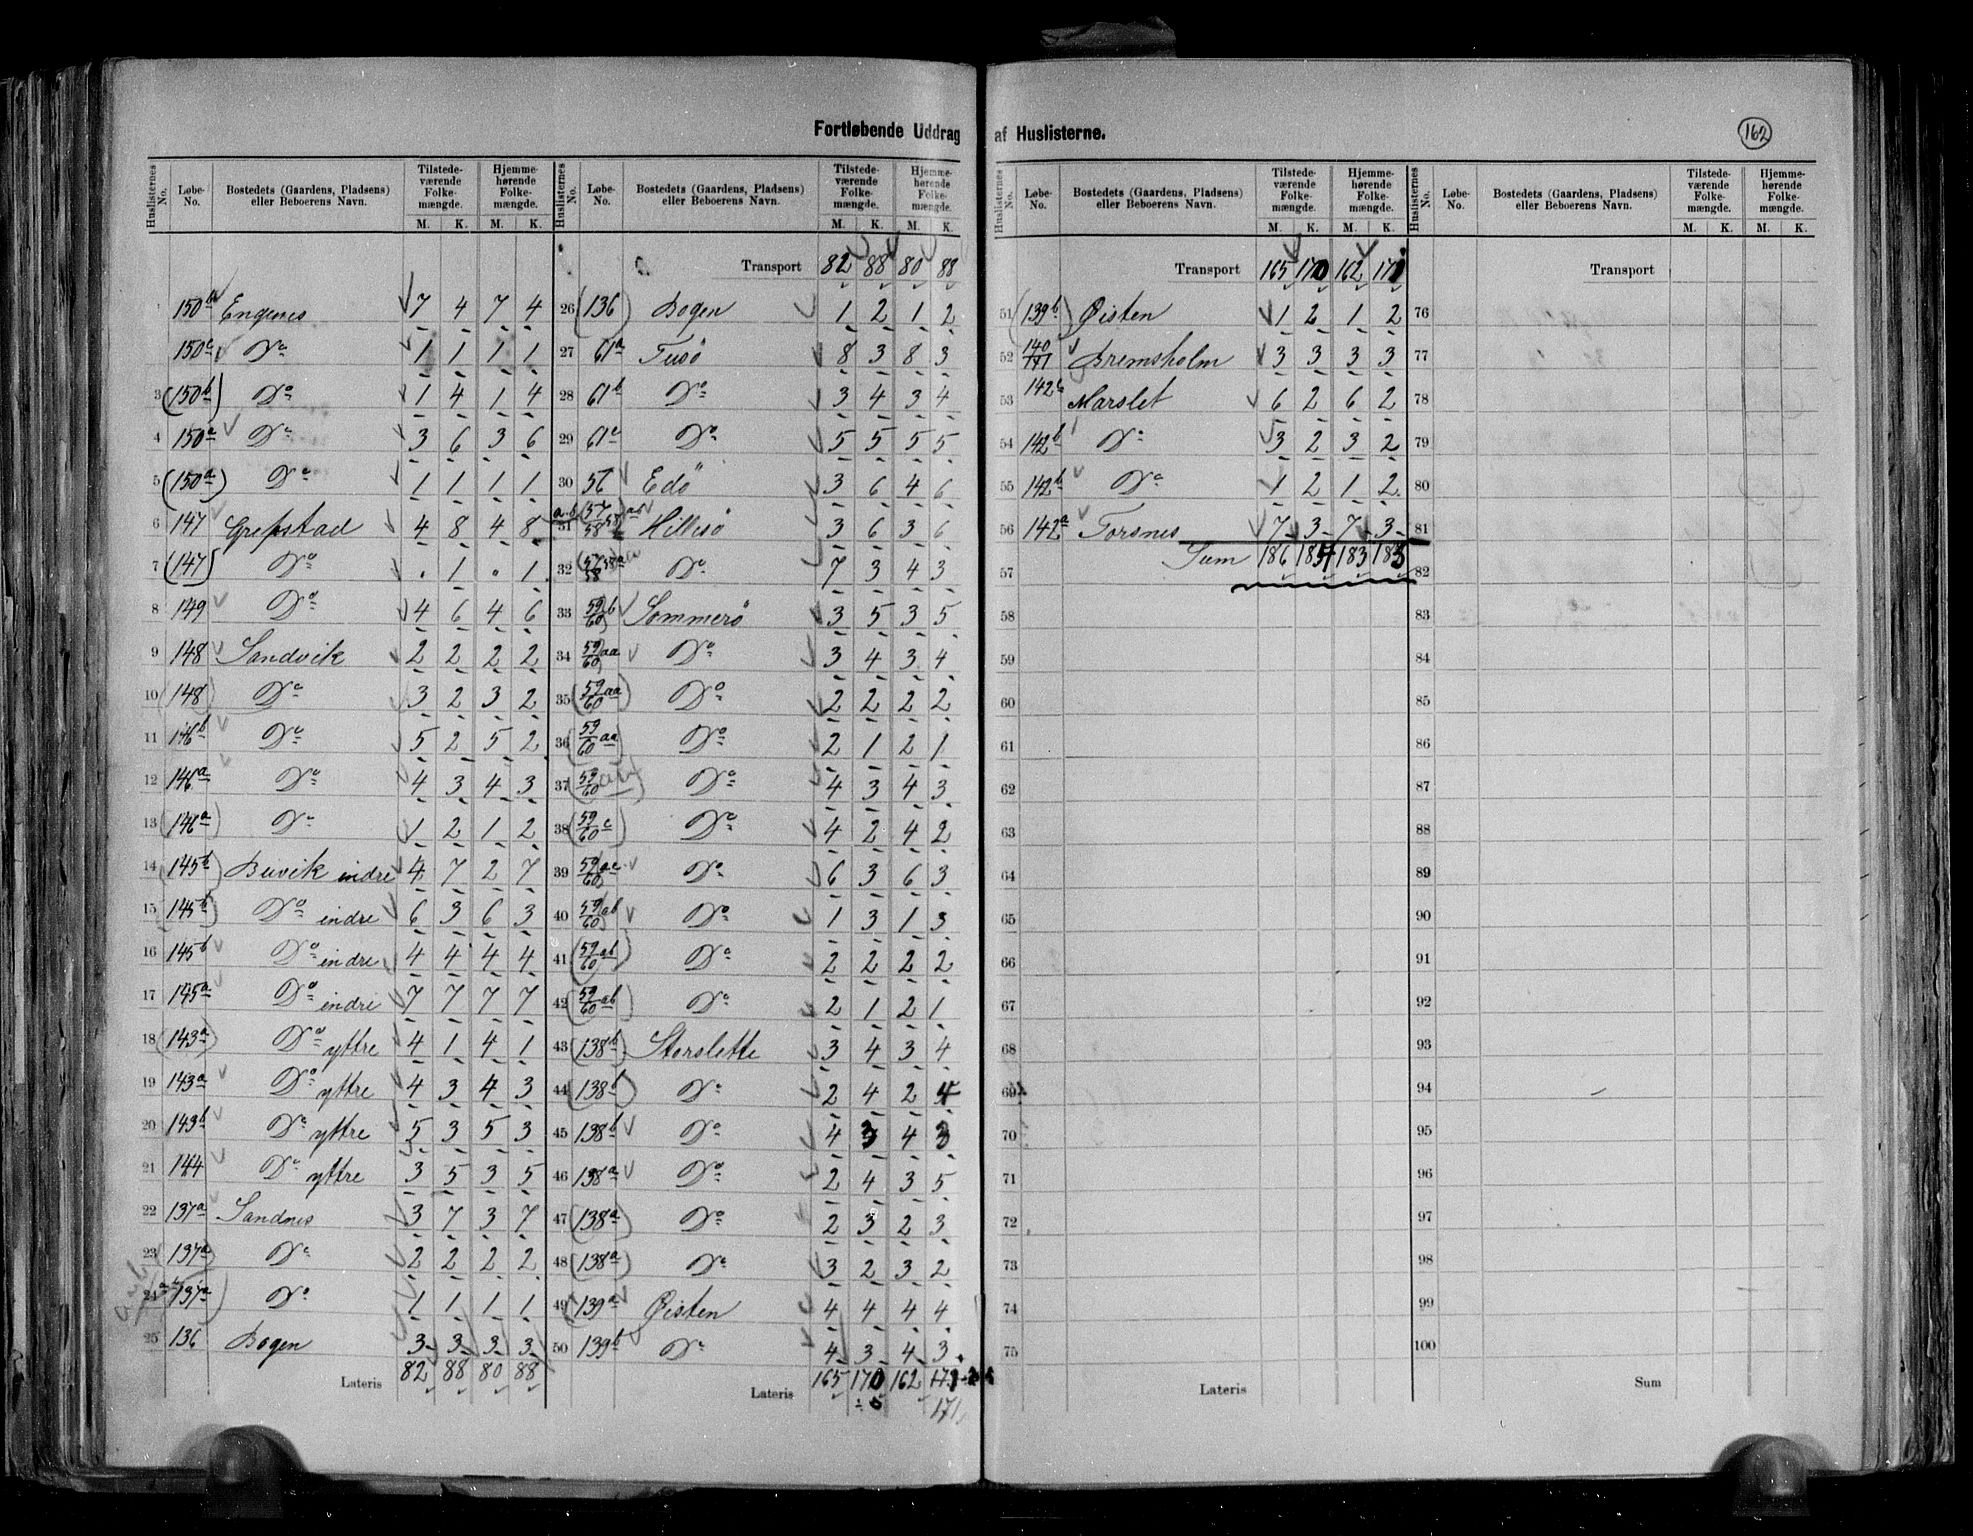 Fortløbende Uddrag af Huslisterne.
162
Huslisternes No. | Løbe-No. | Bostedets (Gaardens, Pladsens) eller Beboerens Navn. | Tilstedeværende Folkemængde. M. K. | Hjemmehørende Folkemængde. M. K.
150 Engenes 7 4 7 4
150c Do 1 1 1 1
3 (150b) Do 1 4 1 4
4 150a Do 3 6 3 6
5 (150a) Do 1 1 1 1
6 147 Grepstad 4 8 4 8
7 (147) Do . 1 . 1
8 149 Do 4 6 4 6
9 148 Sandvik 2 2 2 2
10 (148) Do 3 2 3 2
11 146b Do 5 2 5 2
12 146a Do 4 3 4 3
13 (146a) Do 1 2 1 2
14 (145b) Buvik indre 4 7 2 7
15 (145b) Do indre 6 3 6 3
16 145b Do indre 4 4 4 4
17 145a Do indre 7 7 7 7
18 (143a) Do yttre 4 1 4 1
19 143a Do yttre 4 3 4 3
20 143b Do yttre 5 3 5 3
21 144 Do yttre 3 5 3 5
22 137a Sandnes 3 7 3 7
23 (137a) Do 2 2 2 2
24 (137a) Do 1 1 1 1
25 136 Bogen 3 3 3 3
Lateris 82 88 80 88
Huslisternes No. | Løbe-No. | Bostedets (Gaardens, Pladsens) eller Beboerens Navn. | Tilstedeværende Folkemængde. M. K. | Hjemmehørende Folkemængde. M. K.
Transport 82 88 80 88
26 (136) Bogen 1 2 1 2
27 61a Tusö 8 3 8 3
28 61b Do 3 4 3 4
29 61c Do 5 5 5 5
30 56 Edö 3 6 4 6
31 Hillesö 3 6 3 6
32 Do 7 3 4 3
33 59/60 b Sommerö 3 5 3 5
34 59/60 aa Do 3 4 3 4
35 (59/60 aa) Do 2 2 2 2
36 (59/60 aa) Do 2 1 2 1
37 (59/60) Do 4 3 4 3
38 (59/60 c) Do 4 2 4 2
39 59/60 ac Do 6 3 6 3
40 59/60 ab Do 1 3 1 3
41 (59/60 ab) Do 2 2 2 2
42 (59/60 ab) Do 2 1 2 1
43 (138b) Storslette 3 4 3 4
44 (138b) Do 2 4 2 4
45 138b Do 4 3 4 3
46 138a Do 2 4 3 5
47 (138a) Do 2 3 2 3
48 (138a) Do 3 2 3 2
49 139a Øisten 4 4 4 4
50 139b Do 4 3 4 3
Lateris 165 170 162 171
171
Huslisternes No. | Løbe-No. | Bostedets (Gaardens, Pladsens) eller Beboerens Navn. | Tilstedeværende Folkemængde. M. K. | Hjemmehørende Folkemængde. M. K.
Transport 165 170 162 171
51 (139b) Øisten 1 2 1 2
52 140/141 Bremsholm 3 3 3 3
53 142c Marslet 6 2 6 2
54 142b Do 3 2 3 2
55 142b Do 1 2 1 2
56 142a Torsnes 7 3 7 3
57 Sum 186 184 183 185
58
59
60
61
62
63
64
65
66
67
68
69
70
71
72
73
74
75
Lateris
Huslisternes No. | Løbe-No. | Bostedets (Gaardens, Pladsens) eller Beboerens Navn. | Tilstedeværende Folkemængde. M. K. | Hjemmehørende Folkemængde. M. K.
Transport
76
77
78
79
80
81
82
83
84
85
86
87
88
89
90
91
92
93
94
95
96
97
98
99
100
Sum